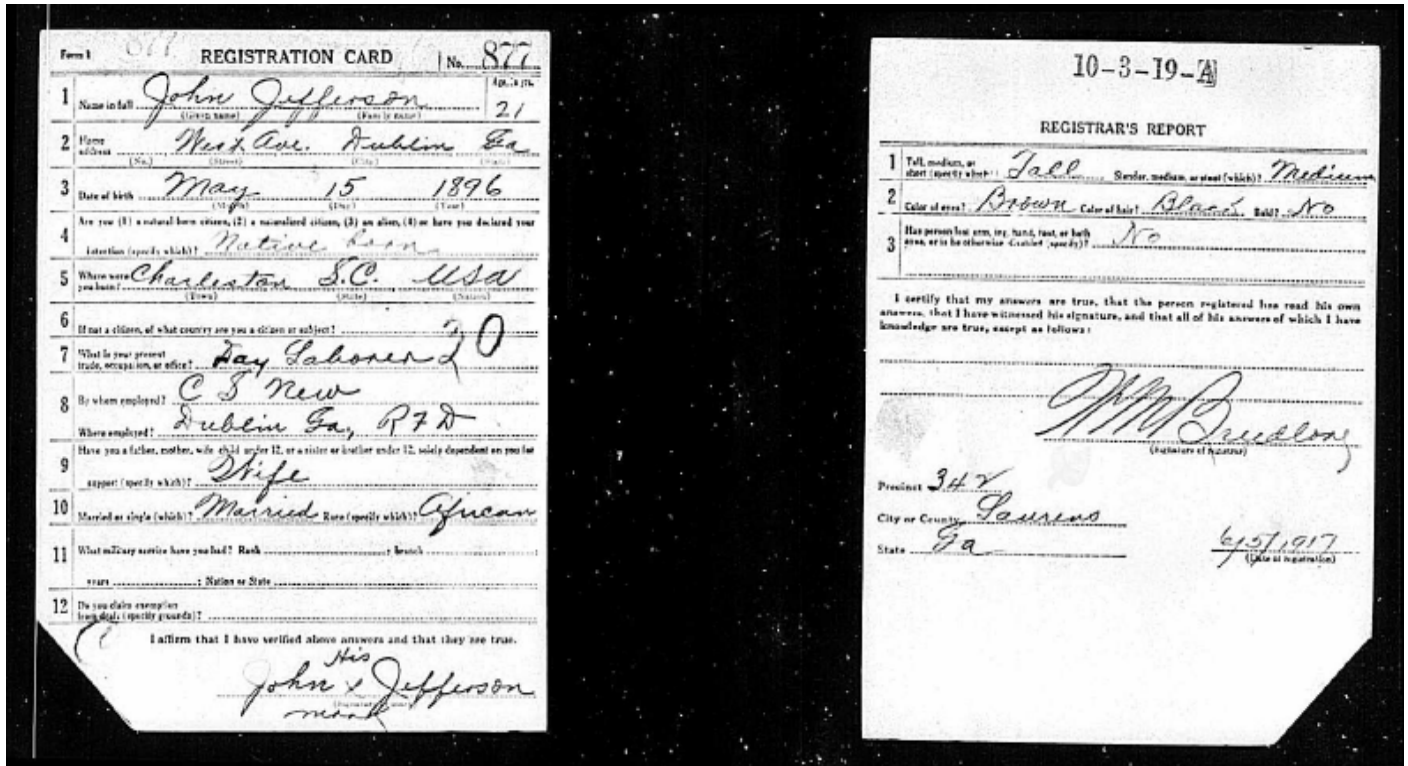 Form 1 877 REGISTRATION CARD No. 877
1 Name in full John Jefferson Age, in yrs. 21
(Given name) (Family name)
2 Home address West Ave. Dublin Ga
(No.) (Street) (City) (State)
3 Date of birth May 15 1896
(Month) (Day) (Year)
4 Are you (1) a natural-born citizen, (2) a naturalized citizen, (3) an alien, (4) or have you declared your
intention (specify which)? Native born
5 Where were you born? Charleston S.C. USA
(Town) (State) (Nation)
6 If not a citizen, of what country are you a citizen or subject?
7 What is your present trade, occupation, or office? Day Laborer 20
8 By whom employed? C S New
Where employed? Dublin Ga, R F D
9 Have you a father, mother, wife, child under 12, or a sister or brother under 12, solely dependent on you for
support (specify which)? Wife
10 Married or single (which)? Married Race (specify which)? African
11 What military service have you had? Rank ; branch ;
years ; Nation or State
12 Do you claim exemption from draft (specify grounds)?
I affirm that I have verified above answers and that they are true.
His
John x Jefferson
(Signature or mark)
mark
10-3-19-A
REGISTRAR'S REPORT
1 Tall, medium, or short (specify which)? Tall Slender, medium, or stout (which)? Medium
2 Color of eyes? Brown Color of hair? Black Bald? No
3 Has person lost arm, leg, hand, foot, or both eyes, or is he otherwise disabled (specify)? No
I certify that my answers are true, that the person registered has read his own
answers, that I have witnessed his signature, and that all of his answers of which I have
knowledge are true, except as follows:
(Signature of registrar)
Precinct 342
City or County Laurens
State Ga 6/5/1917
(Date of registration)